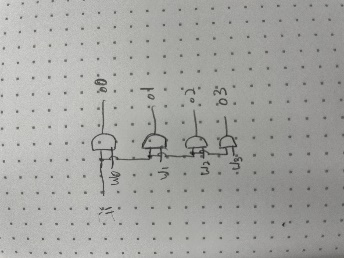 o0
o1
o2
o3
w0
w1
w2
w3
i1